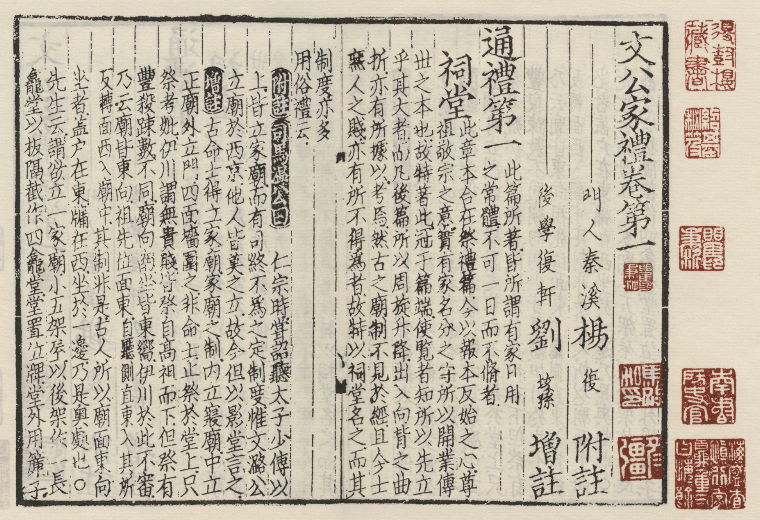 文公家禮卷第一
門人秦溪楊復附註
後學復軒劉垓孫增註
通禮第一
此篇所著皆所謂有家日用
之常體不可一日而不脩者
祠堂
此章本合在祭禮篇今以報本反始之心尊
祖敬宗之意實有家名分之守所以開業傳
世之本也故特著此冠于篇端使覽者知所以先立
乎其大者而凡後篇所以周旋升降出入向背之曲
折亦有所據以考焉然古之廟制不見於經且今士
庶人之賤亦有所不得爲者故特以祠堂名之而其
制度亦多
用俗禮云
附註司馬溫公曰 仁宗時嘗詔聽太子少傅以
上皆立家廟而有司終不爲之定制度惟文潞公
立廟於西京他人皆莫之立故今但以影堂言之
增註 古命士得立家廟家廟之制内立寢廟中立
正廟外立門四面牆圍之非命士止祭於堂上只
祭考妣伊川謂無貴賤皆祭自高祖而下但祭有
豐殺踈數不同廟向南坐皆東嚮伊川於此不審
乃云廟皆東向祖先位面東自聽側直東入其所
反轉面西入廟中其制非是古人所以廟面東向
坐者盖户在東牖在西坐於一邊乃是奥處也○
先生云謂欲立一家廟小五架屋以後架作一長
龕堂以板隔截作四龕堂堂置位牌堂外用簾子